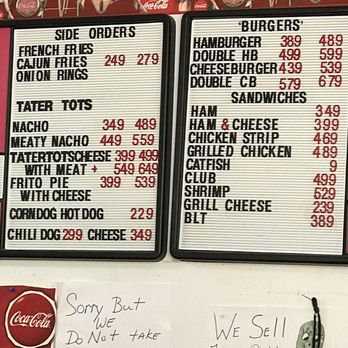 Coca-Cola
SIDE ORDERS
FRENCH FRIES
CAJUN FRIES 249 279
ONION RINGS
TATER TOTS
NACHO 349 489
MEATY NACHO 449 559
TATERTOTSCHEESE 399 499
WITH MEAT 549 649
FRITO PIE 399 539
WITH CHEESE
CORNDOG HOT DOG 229
CHILI DOG 299 CHEESE 349
'BURGERS'
HAMBURGER 389 489
DOUBLE HB 499 599
CHEESEBURGER 439 539
DOUBLE CB 579 679
SANDWICHES
HAM 349
HAM & CHEESE 399
CHICKEN STRIP 469
GRILLED CHICKEN 489
CATFISH 9
CLUB 499
SHRIMP 529
GRILL CHEESE 239
BLT 389
Coca-Cola
Sorry But
WE
Do Not take
We Sell